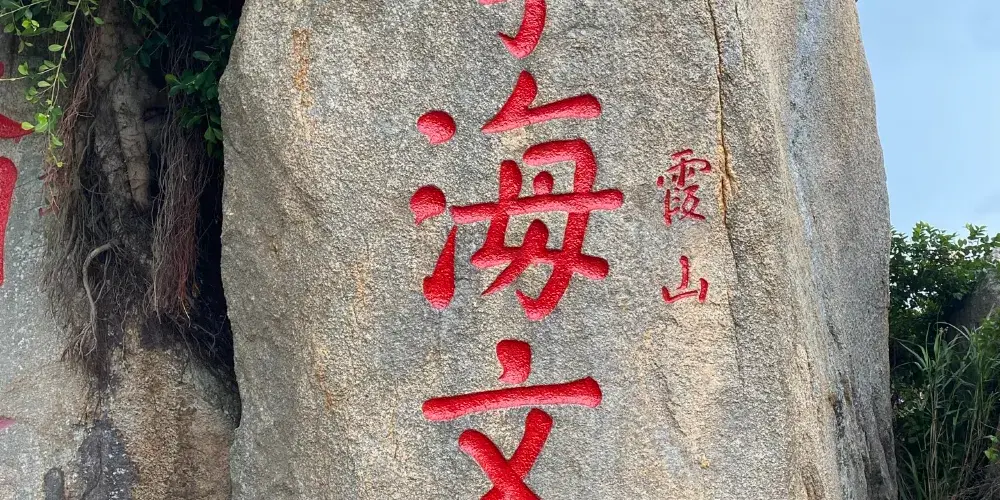 霞山
海文